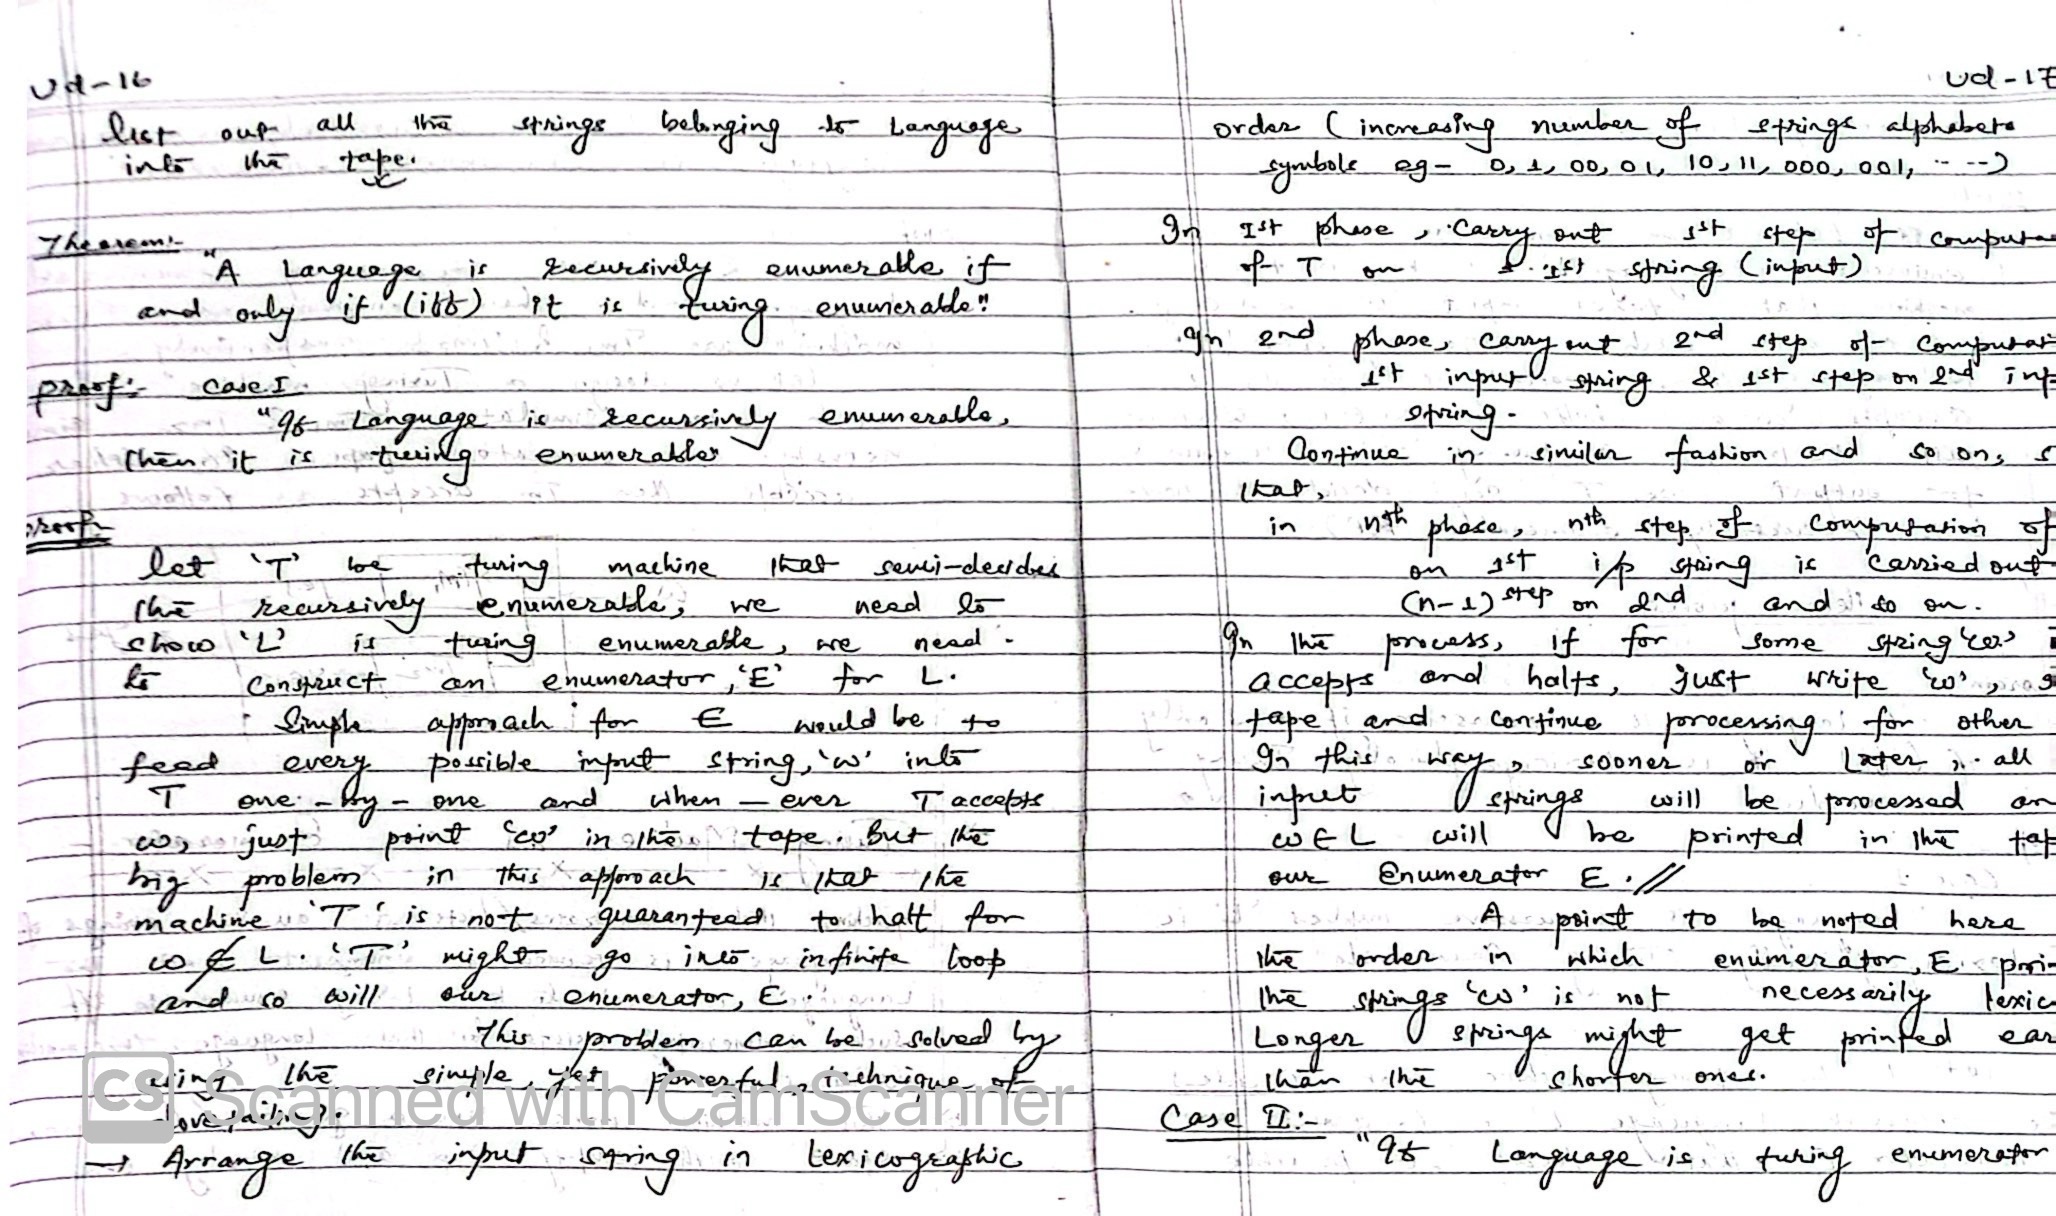 Ud-16
list out all the strings belonging to Language
into the tape.
Theorem:-
"A Language is recursively enumerable if
and only if (iff) it is turing enumerable."
proof:- case I
"If Language is recursively enumerable,
then it is turing enumerable"
proof:-
let 'T' be turing machine that semi-decides
the recursively enumerable, we need to
show 'L' is turing enumerable, we need
to construct an enumerator, 'E' for L.
Simple approach for E would be to
feed every possible input string, 'w' into
T one-by-one and when-ever T accepts
w, just point 'w' in the tape. But the
big problem in this approach is that the
machine 'T' is not guaranteed to halt for
w ∉ L. 'T' might go into infinite loop
and so will our enumerator, E.
This problem can be solved by
using the simple, yet powerful, technique of
dovetailing.
→ Arrange the input string in Lexicographic
Ud-17
order (increasing number of strings alphabets
symbols eg- 0, 1, 00, 01, 10, 11, 000, 001, ....)
In 1st phase, carry out 1st step of computa
of T on 1st string (input)
In 2nd phase, carry out 2nd step of computat
1st input string & 1st step on 2nd inp
string.
Continue in similar fashion and so on, s
that,
in nth phase, nth step of computation of
on 1st i/p string is carried out
(n-1) step on 2nd and so on.
In the process, if for some string 'w'
accepts and halts, just write 'w',
tape and continue processing for other
In this way, sooner or later, all
input strings will be processed an
w ∈ L will be printed in the tap
our Enumerator E. //
A point to be noted here
the order in which enumerator, E prin
the strings 'w' is not necessarily lexic
Longer strings might get printed ear
than the shorter ones.
Case II:-
"If Language is turing enumerator
CS Scanned with CamScanner